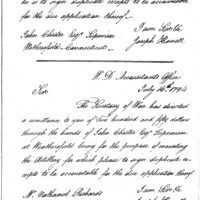 he is to sign duplicate receipts to be accountable
for the due application thereof
I am Sir &c
John Chester Esqr Supervisor
Joseph Howell
Wethersfield, Connecticut
W. D. Accountants Office
July 16th 1794
Sir
The Secretary of War has directed
a remittance to you of Six hundred and fifty dollars
through the hands of John Chester Esqr Supervisor
at Weathersfield being for the purpose of mounting
the Artillery for which please to sign duplicate re-
ceipts to be accountable for the due application thereof
I am Sir &c
Mr Nathaniel Richards
Joseph Howell